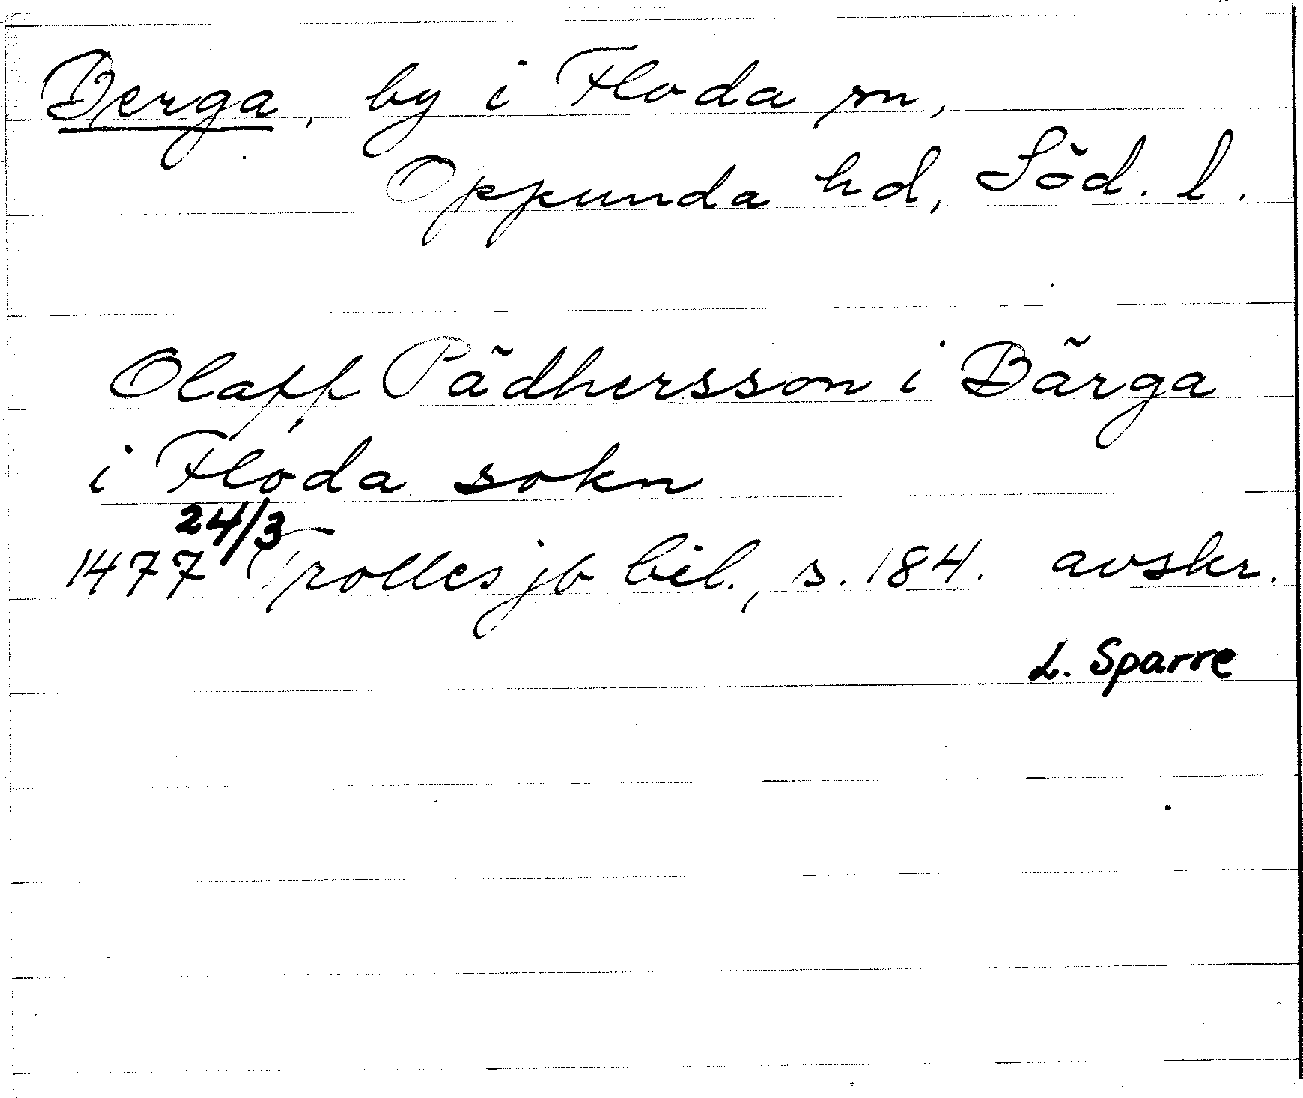 Berga, by i Floda sn,
Oppunda hd, Söd. l.
Olaff Pädhersson i Bärga
i Floda sokn
1477 24/3 Trolles jb bil., s. 184. avskr.
L. Sparre